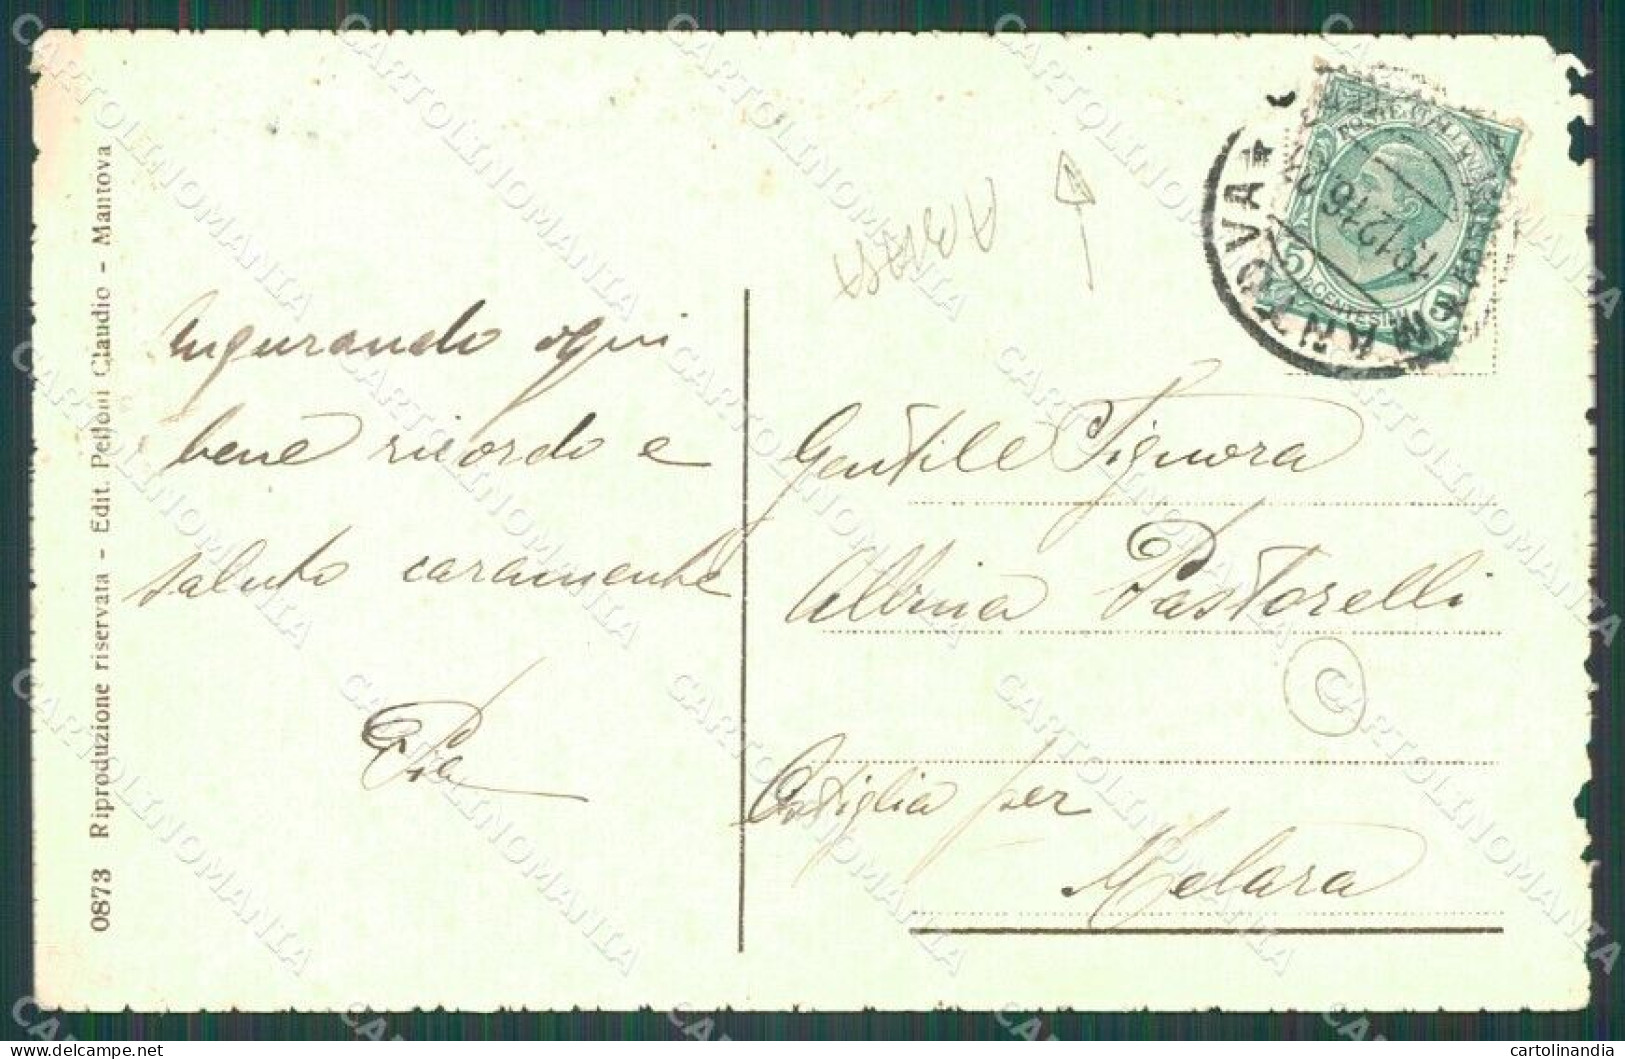 0873 Riproduzione riservata - Edit. Pelloni Claudio - Mantova
Augurando ogni
bene ricordo e
saluto caramente
Pia
POSTE ITALIANE
CENTESIMI
5
5
MANTOVA
Gentile Signora
Albina Pastorelli
Ostiglia per
Melara
C
CARTOLINOMANIA
cartolinandia